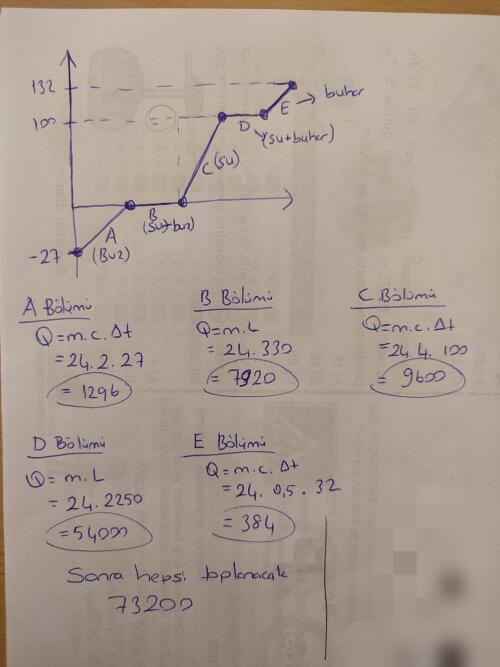 132
100
-27
A
(Buz)
B
(Su+buz)
C (Su)
D
(su+buhar)
E → buhar
A Bölümü
Q=m.c.Δt
=24.2.27
=1296
B Bölümü
Q=m.L
=24.330
=7920
C Bölümü
Q=m.c.Δt
=24.4.100
=9600
D Bölümü
Q=m.L
=24.2250
=54000
E Bölümü
Q=m.c.Δt
=24.0,5.32
=384
Sonra hepsi toplanacak
73200